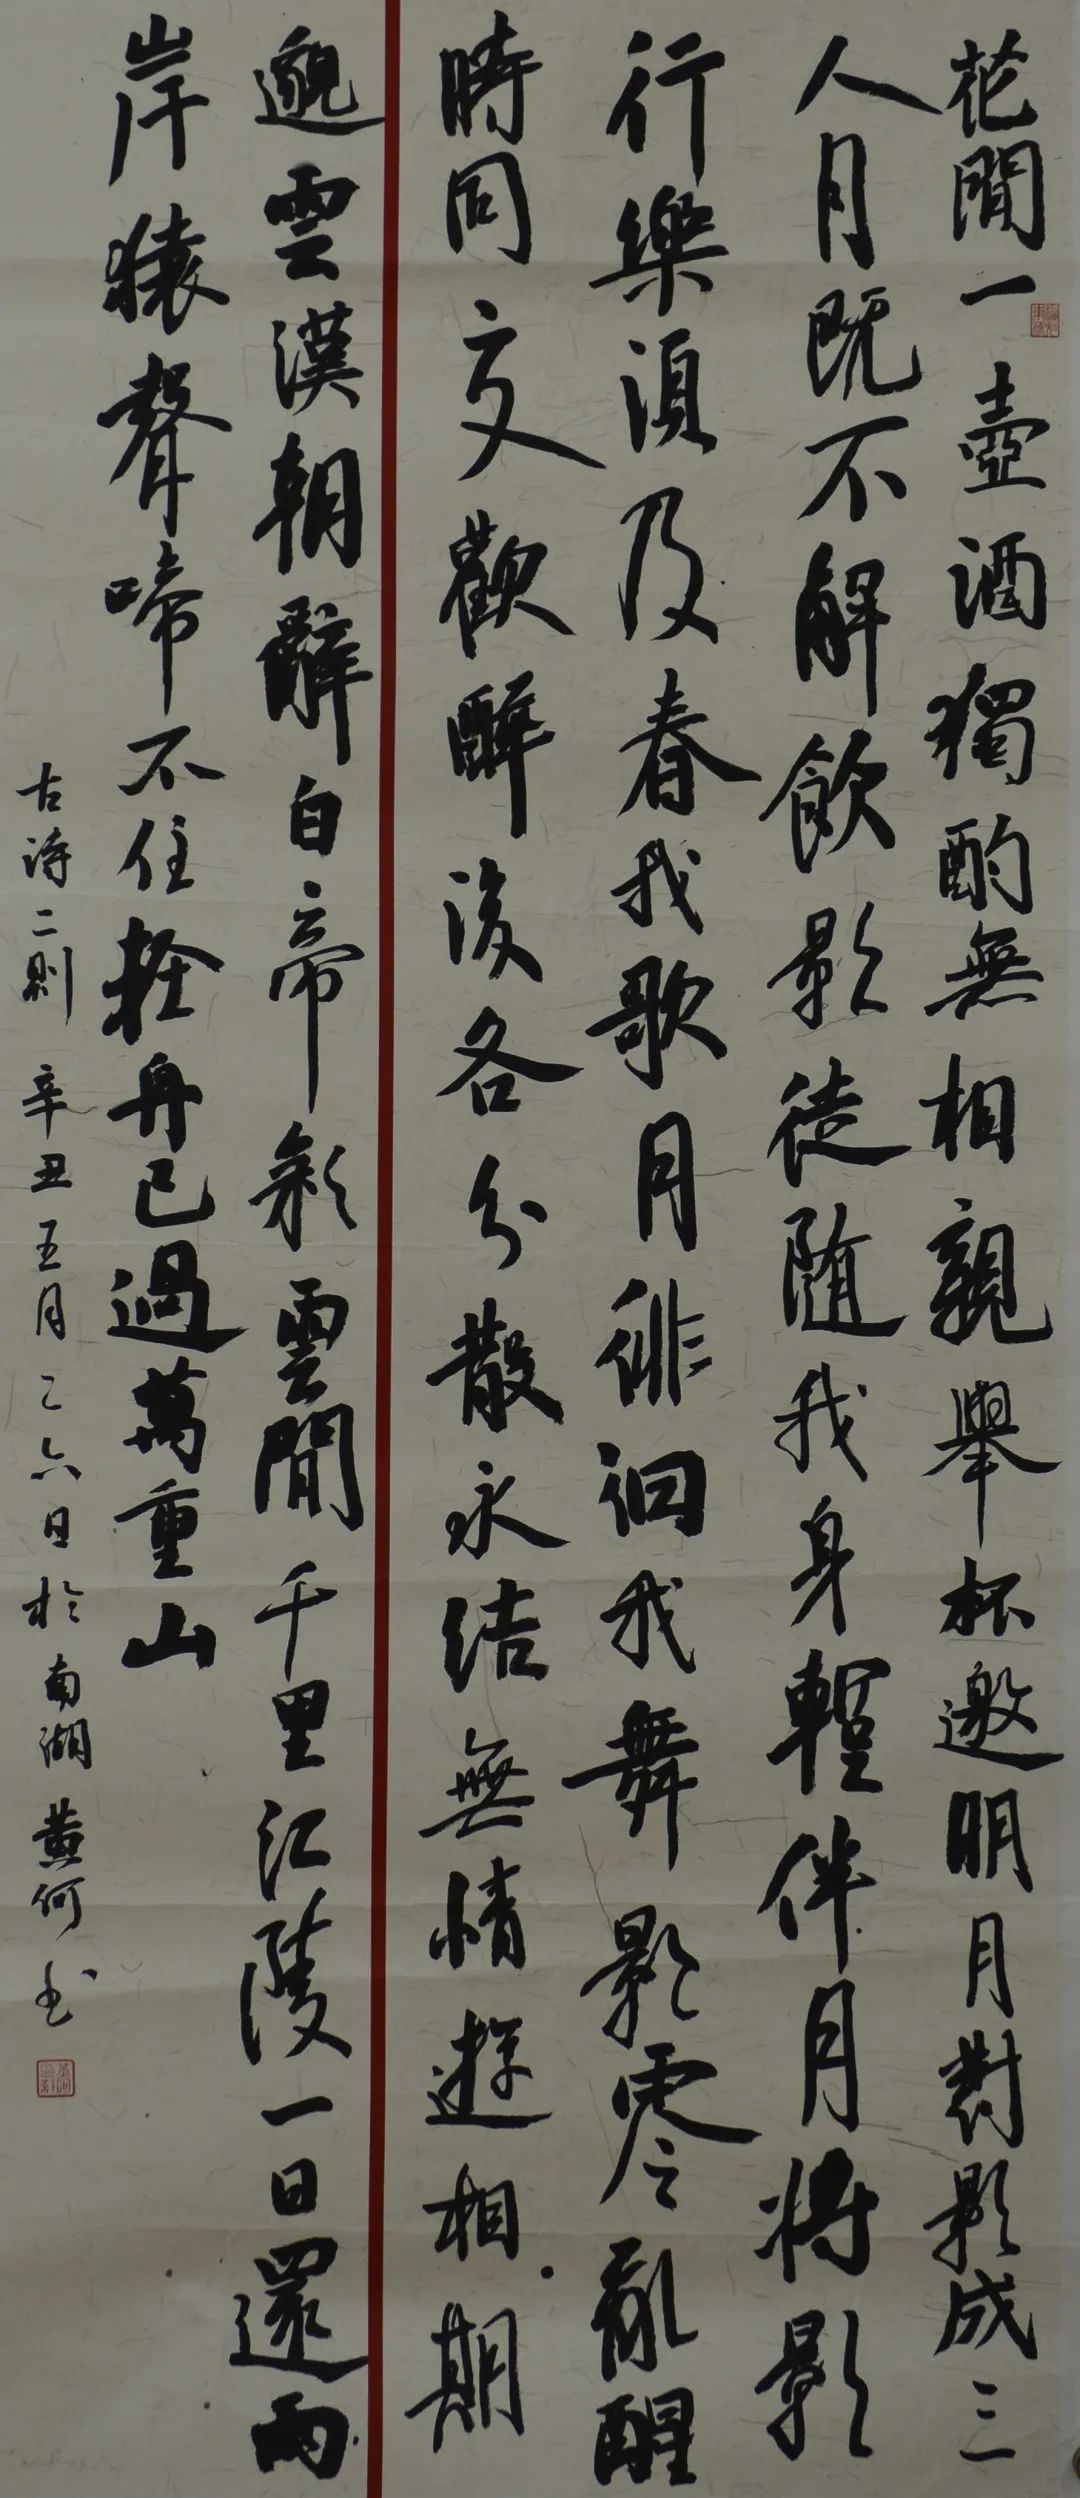 花間一壺酒獨酌無相親舉杯邀明月對影成三
人月既不解飲影徒随我身暫伴月將影
行樂須及春我歌月徘徊我舞影零亂醒
時同交歡醉後各分散永結無情遊相期
邈雲漢朝辭白帝彩雲間千里江陵一日還兩
岸猿聲啼不住輕舟已過萬重山
古诗二則 辛丑五月乙六日於南湖黄何书